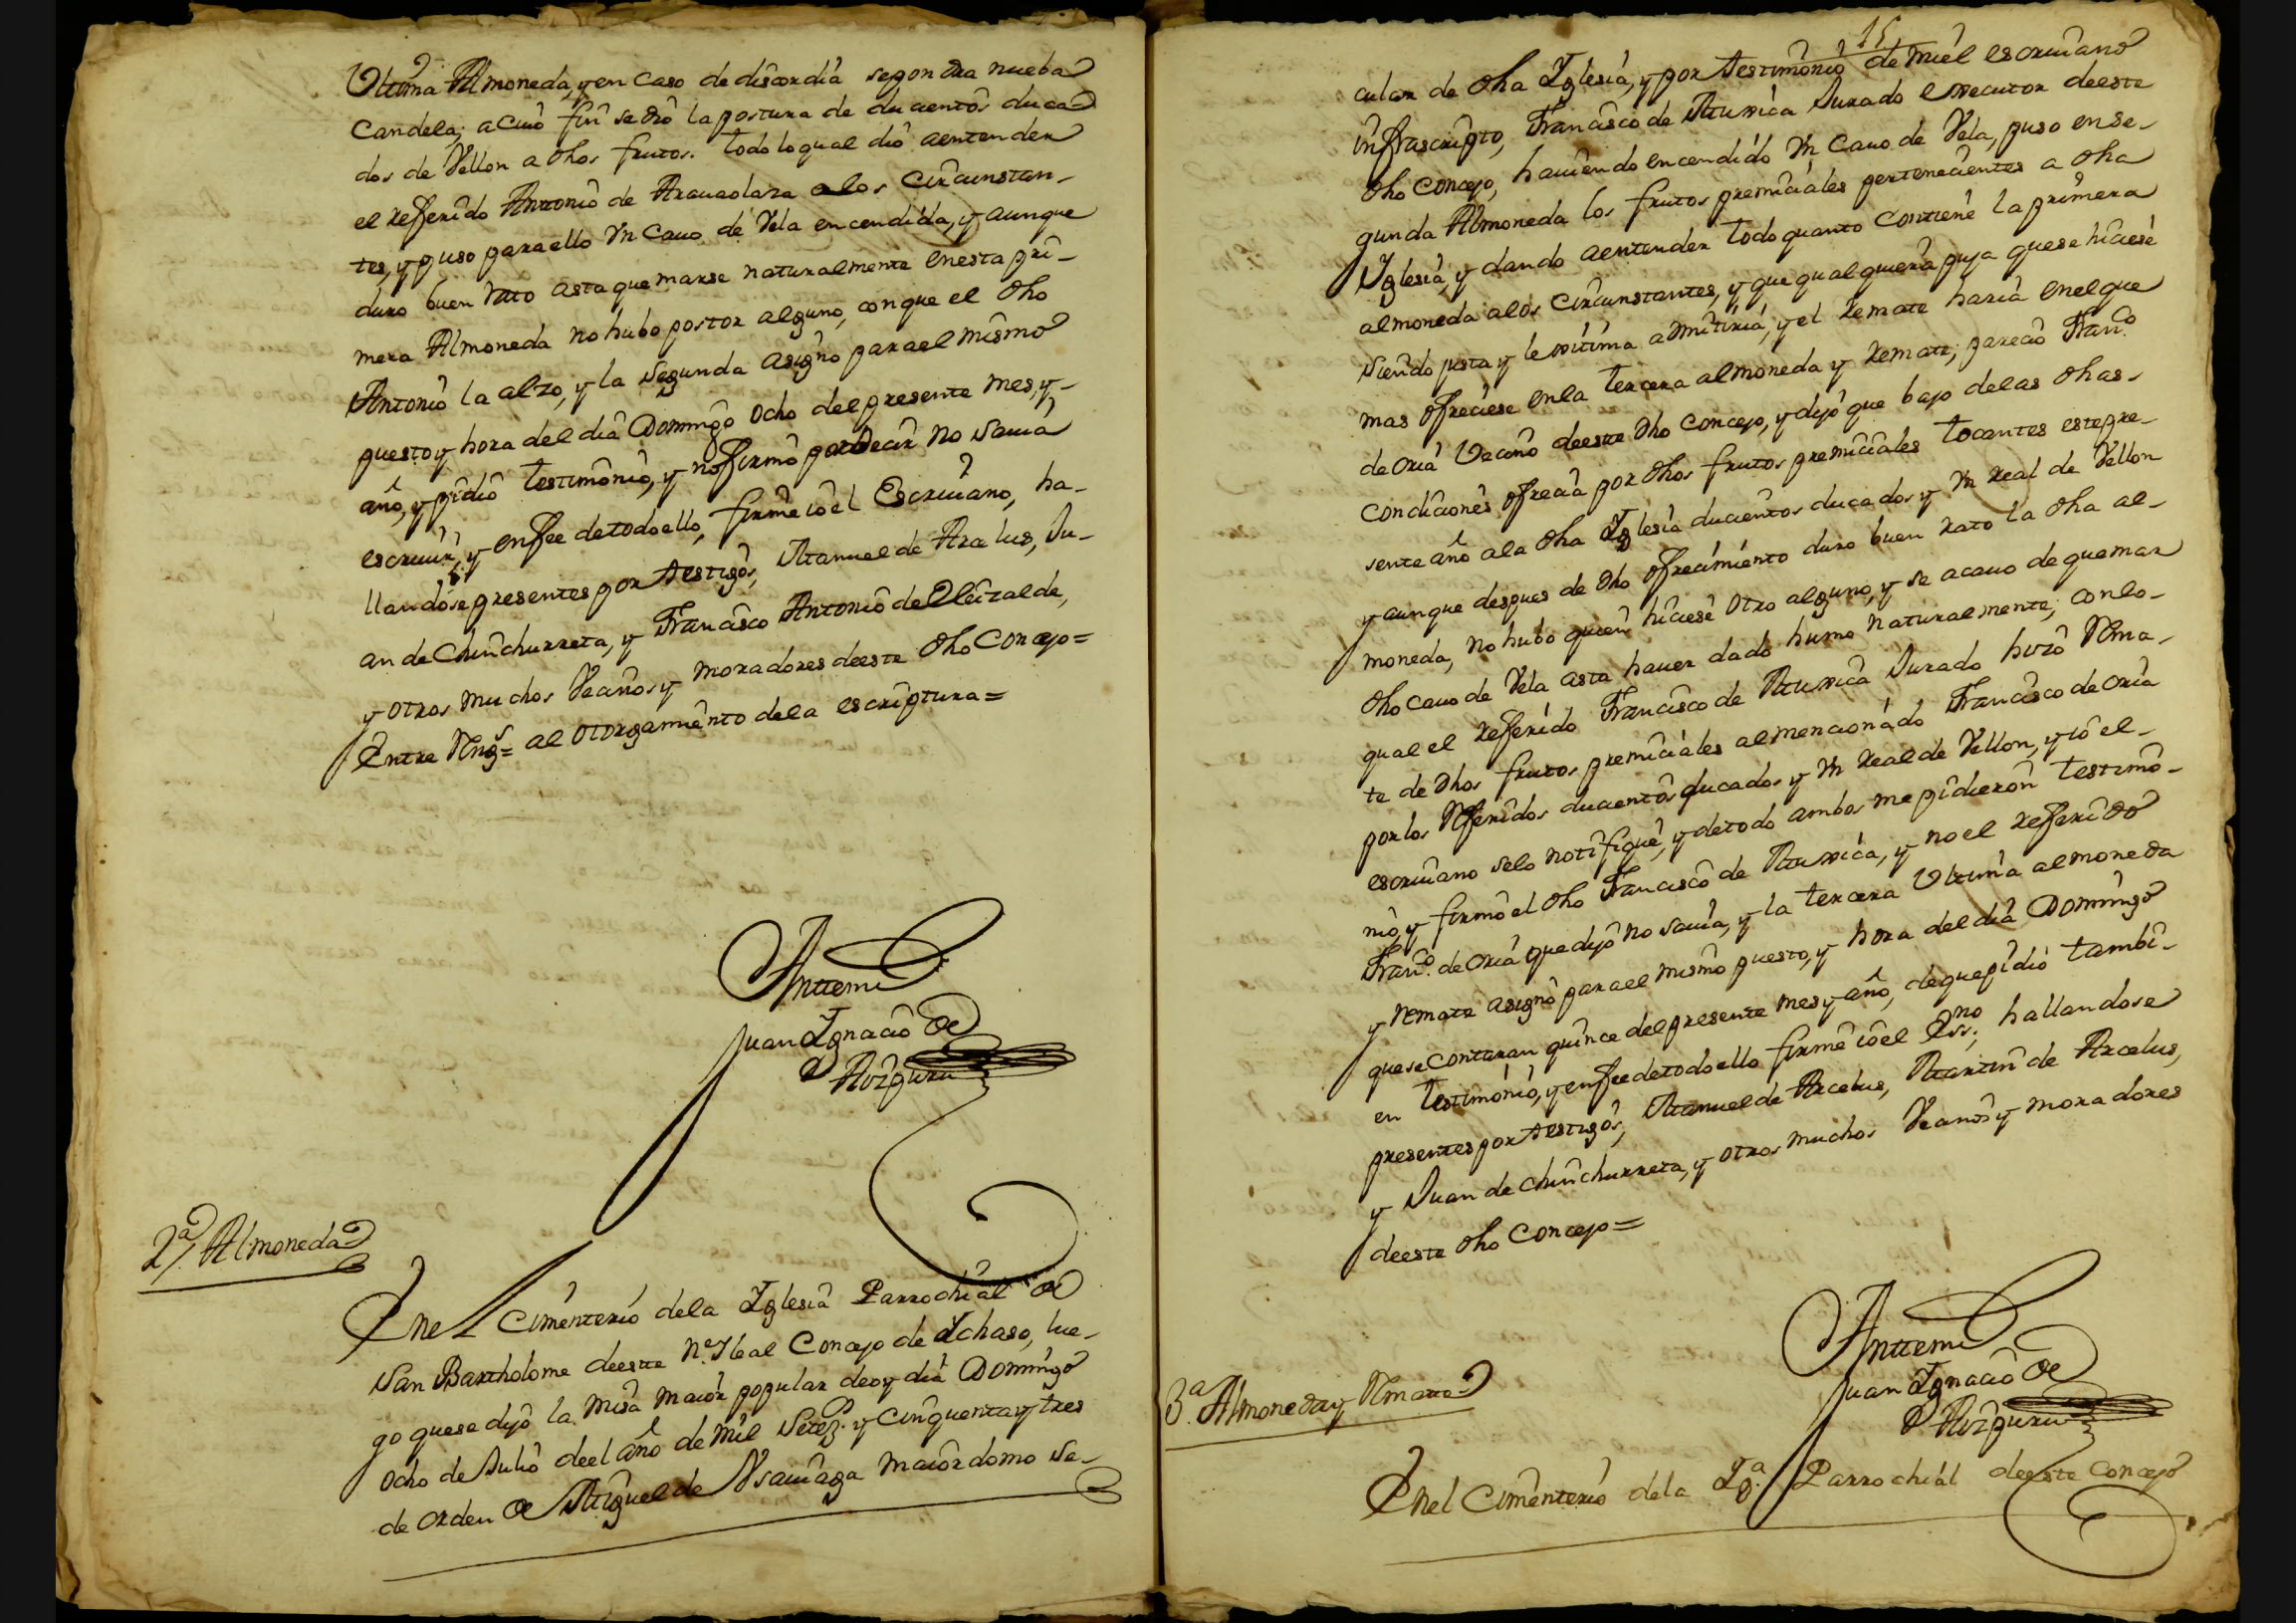 Ultima Almoneda, y en caso de discordia se pondra nueba
Candela; a cuio fin se dio la postura de ducientos duca-
dos de Vellon a dhos frutos. todo lo qual dio a entender
el refferido Antonio de Araucolaza a los Circunstan-
tes, y puso para ello Un Cauo de Vela encendida, y aunque
duro buen rato asta quemarse naturalmente en esta pri-
mera Almoneda no hubo postor alguno, con que el dho
Antonio la alzo, y la segunda asigno para el mismo
puesto y hora del dia Domingo ocho del presente mes, y
año, y pidio testimonio, y no firmo por decir no sauia
escriuir, y en fee de todo ello, firme io el Escriuano, ha-
llandose presentes por testigos, Manuel de Arzelus, Ju-
an de Chinchurreta, y Francisco Antonio de Elizalde,
y otros muchos Vecinos y moradores de este dho Concejo=
Entre Rengs= al otorgamiento de la escriptura=
Antemi
Juan Ignacio de
Aizpuru
2ª Almoneda
En el Cimenterio de la Iglesia Parrochial de
San Bartholome de este N.e y leal Concejo de Ichaso, lue-
go que se dijo la Misa maior popular de oy dia Domingo
ocho de Julio de el año de mil Setez.s y cinquenta y tres
de orden de Miguel de Usauiaga maiordomo se-
15
cular de dha Iglesia, y por testimonio de mi el escriuano
infrascripto, Francisco de Muxica Jurado executor de este
dho Concejo, hauiendo encendido Un Cauo de Vela, puso en se-
gunda Almoneda los frutos premiciales pertenecientes a dha
Iglesia, y dando a entender todo quanto Contiene la primera
almoneda a los Circunstantes, y que qualquiera puja que se hiciese
siendo justa y lexitima admitiria, y el remate haria en el que
mas ofreciese en la tercera almoneda y remate; parecio Fran.co
de oria Vecino de este dho Concejo, y dijo que bajo de las dhas
condiciones ofrecia por dhos frutos premiciales tocantes este pre-
sente año a la dha Iglesia ducientos ducados y Un real de Vellon
y aunque despues de dho ofrecimiento duro buen rato la dha al-
moneda, no hubo quien hiciese otro alguno, y se acauo de quemar
dho cauo de Vela asta hauer dado humo naturalmente; con lo
qual el refferido Francisco de Muxica Jurado hizo Rema-
te de dhos frutos premiciales al mencionado Francisco de oria
por los Refferidos ducientos ducados y Un real de Vellon, y io el
escriuano se lo notifique, y de todo ambos me pidieron testimo-
nio, y firmo el dho Francisco de Muxica, y no el refferido
Fran.co de oria que dijo no sauia, y la tercera Ultima almoneda
y remate asigno para el mismo puesto, y hora del dia Domingo
que se contaran quince del presente mes y año, de que pidio tambi-
en testimonio, y en fee de todo ello firme io el Ess.no, hallandose
presentes por testigos, Manuel de Arcelus, Martin de Arcelus,
y Juan de chinchurreta, y otros muchos Vecinos y moradores
de este dho Concejo=
Antemi
Juan Ignacio de
Aizpuru
3.ª Almoneda y Remate
En el Cimenterio de la Ig.ª Parrochial de este Concejo